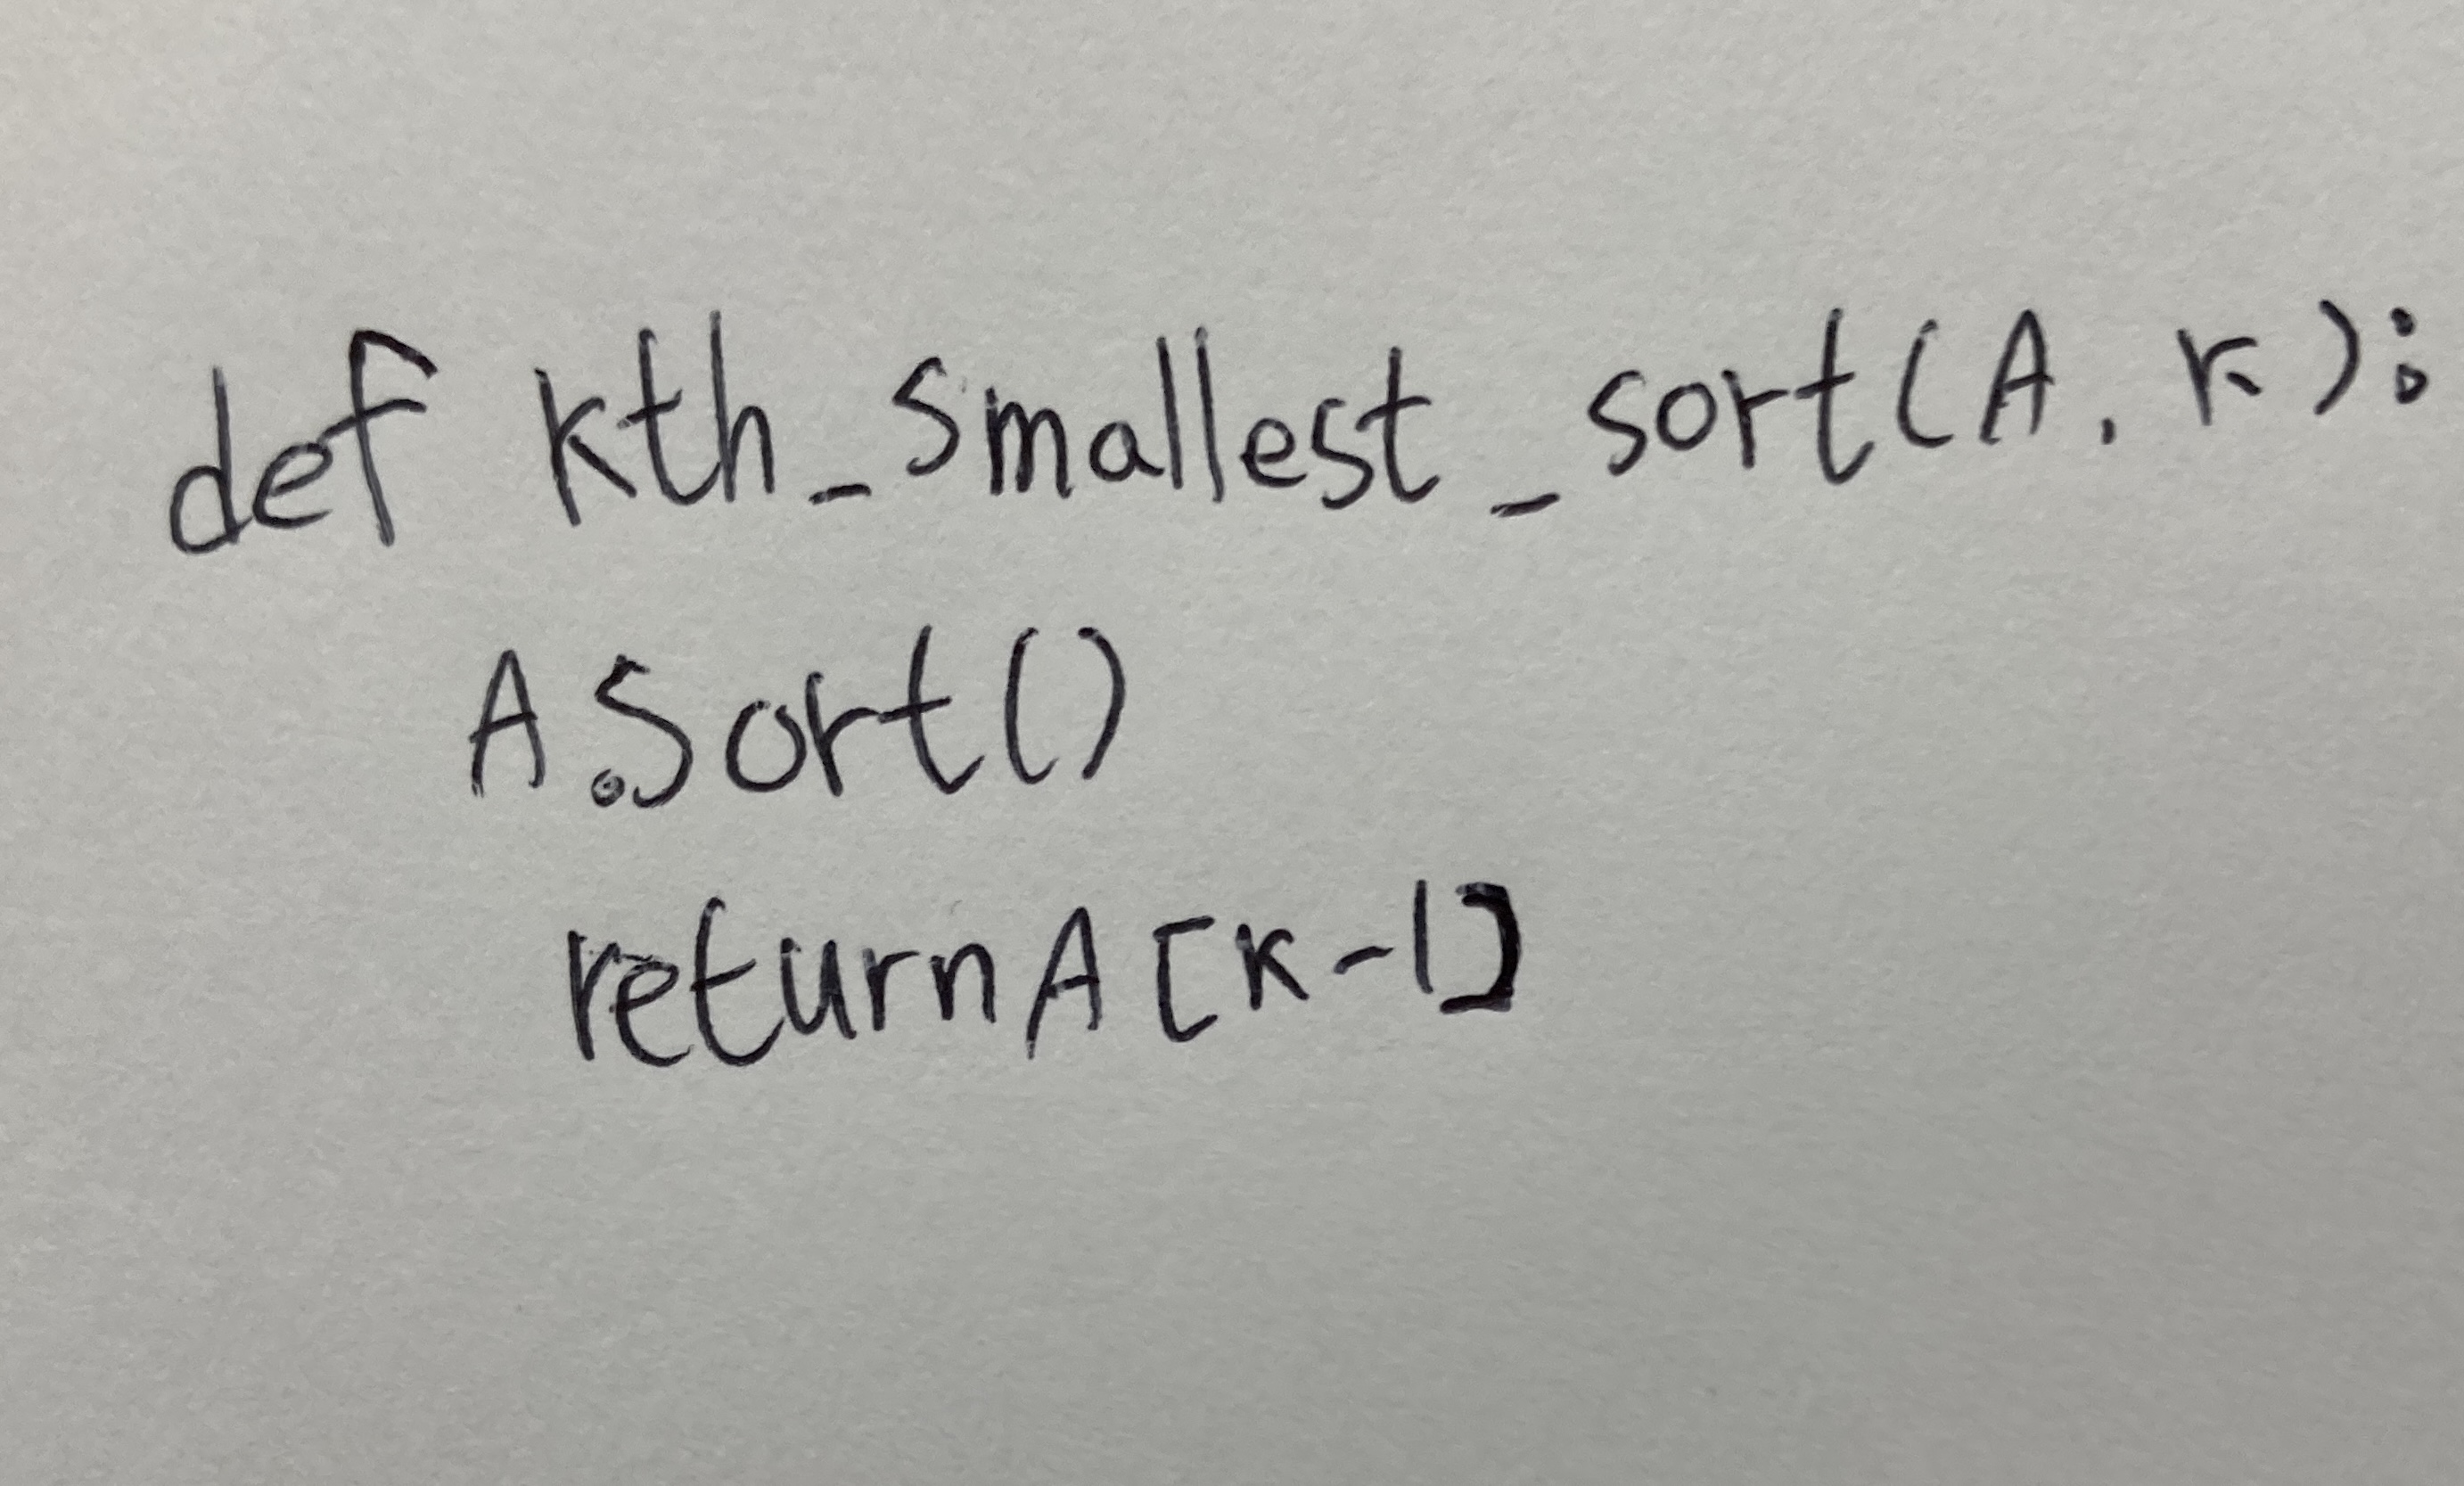 def kth_smallest_sort(A, k):
A.Sort()
return A[k-1]